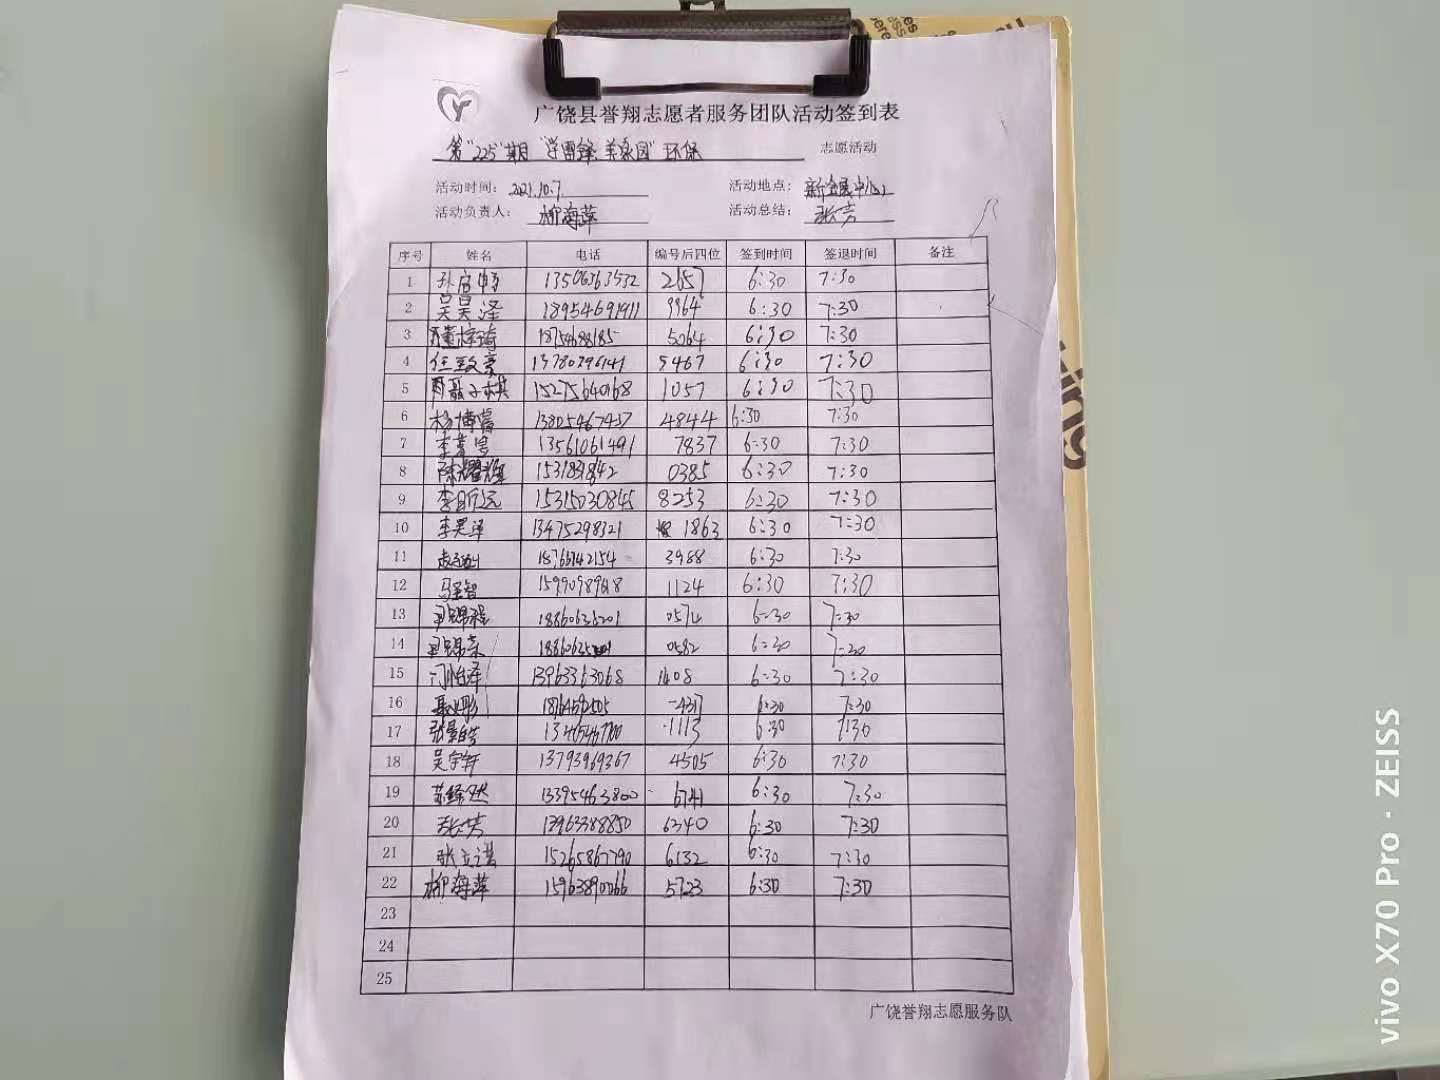 广饶县誉翔志愿者服务团队活动签到表
第"225"期"学雷锋 美家园"环保 志愿活动
活动时间: 2021.10.7 活动地点: 新金展中心
活动负责人: 柳海萍 活动总结: 张芳
序号 姓名 电话 编号后四位 签到时间 签退时间 备注
1 13506363532 2657 6:30 7:30
2 吴昊泽 18954691911 9964 6:30 7:30
3 5064 6:30 7:30
4 任致豪 13780796141 5467 6:30 7:30
5 15275640168 1057 6:30 7:30
6 杨博富 13805467437 4844 6:30 7:30
7 13561061491 7837 6:30 7:30
8 陈耀耀 0385 6:30 7:30
9 李昕远 15315030845 8253 6:30 7:30
10 李昊泽 13475298321 1863 6:30 7:30
11 18766742154 3988 6:30 7:30
12 马圣智 1124 6:30 7:30
13 18860635201 0574 6:30 7:30
14 0582 6:30 7:30
15 门怡泽 13963363068 1608 6:30 7:30
16 6:30 7:30
17 1113 6:30 7:30
18 吴宇轩 13793969367 4505 6:30 7:30
19 13395463800 6741 6:30 7:30
20 张芳 13963388850 6340 6:30 7:30
21 张立诺 15265867790 6132 6:30 7:30
22 柳海萍 15963890066 5723 6:30 7:30
23
24
25
广饶誉翔志愿服务队
vivo X70 Pro · ZEISS